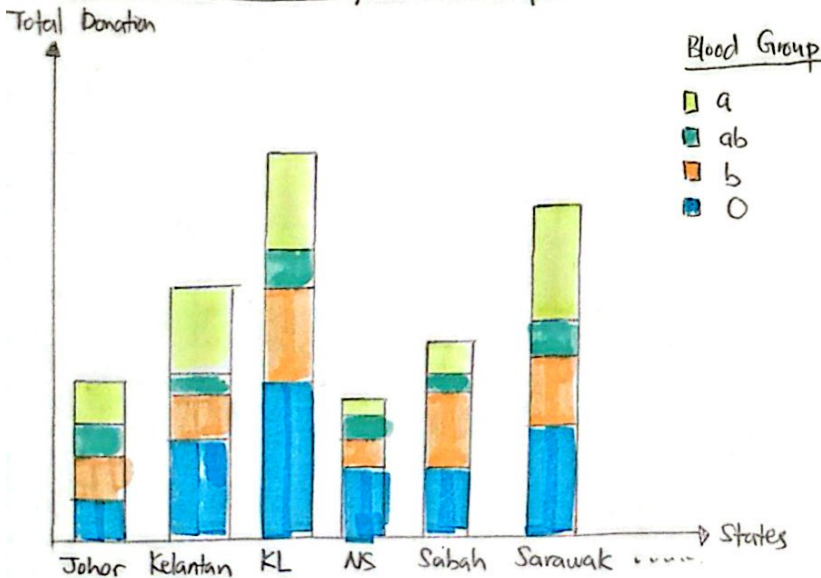 Total Donation
Blood Group
a
ab
b
O
States
Johor Kelantan KL NS Sabah Sarawak ......